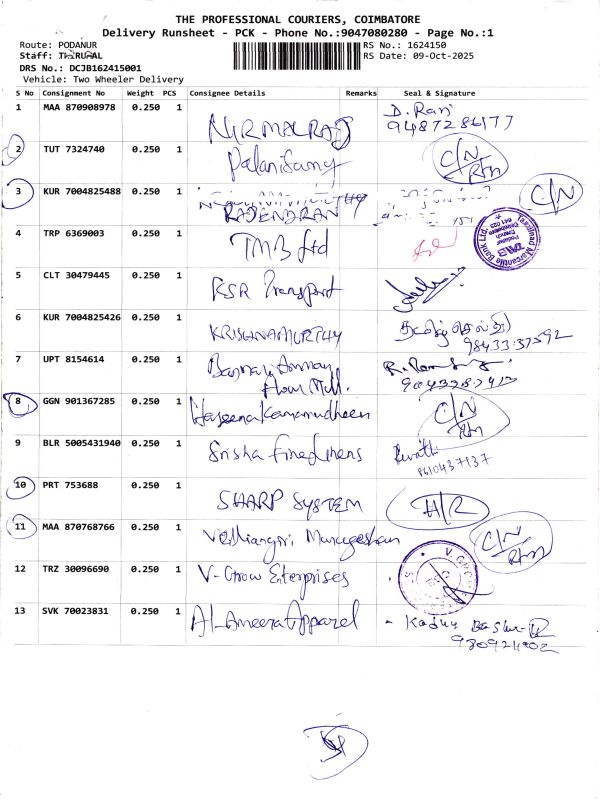 THE PROFESSIONAL COURIERS, COIMBATORE
Delivery Runsheet - PCK - Phone No.:9047080280 - Page No.:1
Route: PODANUR RS No.: 1624150
Staff: RS Date: 09-Oct-2025
DRS No.: DCJB162415001
Vehicle: Two Wheeler Delivery
S No Consignment No Weight PCS Consignee Details Remarks Seal & Signature
1 MAA 870908978 0.250 1 NIRMALRAJ D. Ravi
9487286177
2 TUT 7324740 0.250 1 Palanisamy C/N
3 KUR 7004825488 0.250 1 RAJENDRAN C/N
4 TRP 6369003 0.250 1 TMB Ltd Tamilnad Mercantile Bank Ltd.
5 CLT 30479445 0.250 1 KSR Transport
6 KUR 7004825426 0.250 1 KRISHNAMURTHY
98433 37592
7 UPT 8154614 0.250 1
Flour Mill.
8 GGN 901367285 0.250 1 Haseena Kamarudheen C/N
9 BLR 5005431940 0.250 1 Srisha Finedhens Revathi
8610437137
10 PRT 753688 0.250 1 SHARP SYSTEM H/R
11 MAA 870768766 0.250 1 Velliangiri Murugeshan C/N
12 TRZ 30096690 0.250 1 V-Grow Enterprises
13 SVK 70023831 0.250 1 Al-Ameera Apparel